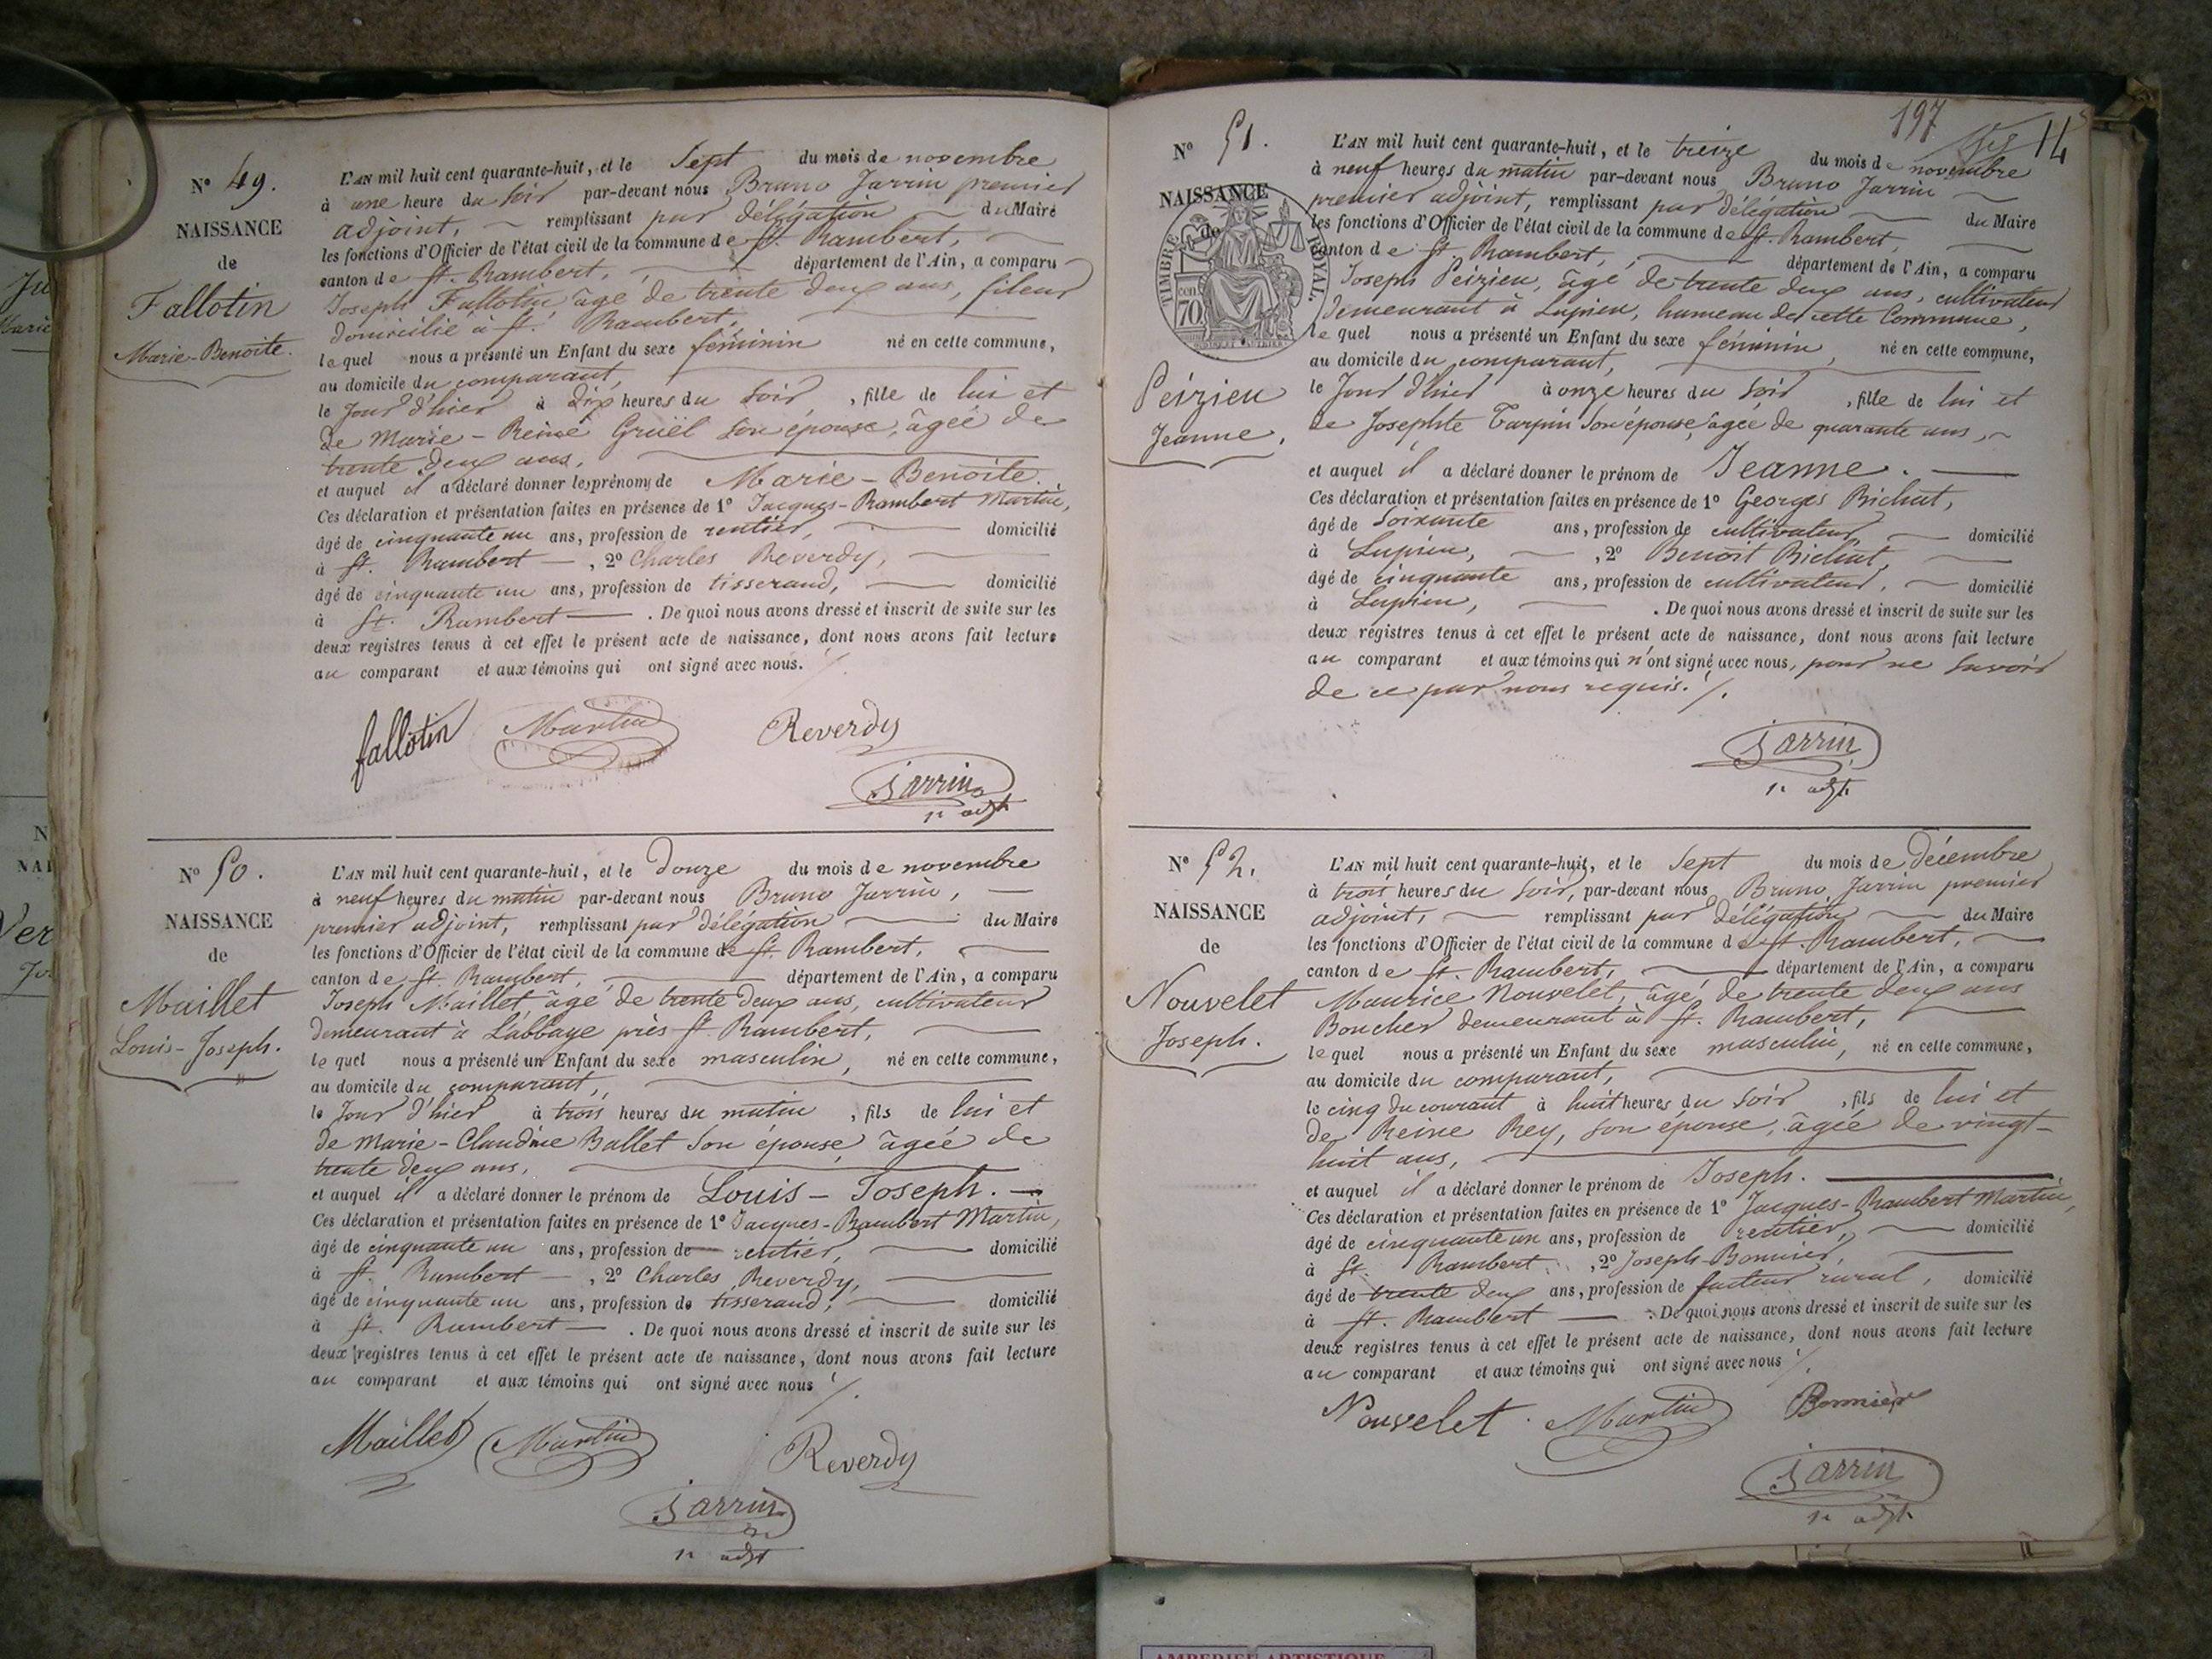 N° 49.
NAISSANCE
de
Fallotin
Marie-Benoite.
L'AN mil huit cent quarante-huit, et le Sept du mois de novembre
à une heure du soir par-devant nous Bruno Jarrin premier
adjoint, remplissant par délégation du Maire
les fonctions d'Officier de l'état civil de la commune de St. Rambert,
canton de St. Rambert, département de l'Ain, a comparu
Joseph Fallotin âgé de trente deux ans, fileur
domicilié à St. Rambert,
lequel nous a présenté un Enfant du sexe féminin né en cette commune,
au domicile du comparant,
le Jour d'hier à dix heures du soir, fille de lui et
de Marie-Reine Gruël son épouse, âgée de
trente deux ans,
et auquel il a déclaré donner les prénoms de Marie-Benoite.
Ces déclaration et présentation faites en présence de 1° Jacques-Rambert Martin,
âgé de cinquante un ans, profession de rentier, domicilié
à St. Rambert, 2° Charles Reverdy,
âgé de cinquante un ans, profession de tisserand, domicilié
à St. Rambert. De quoi nous avons dressé et inscrit de suite sur les
deux registres tenus à cet effet le présent acte de naissance, dont nous avons fait lecture
au comparant et aux témoins qui ont signé avec nous.
fallotin Martin Reverdy
Jarrin
1r adjt
N° 50.
NAISSANCE
de
Maillet
Louis-Joseph.
L'AN mil huit cent quarante-huit, et le Douze du mois de novembre
à neuf heures du matin par-devant nous Bruno Jarrin,
premier adjoint, remplissant par délégation du Maire
les fonctions d'Officier de l'état civil de la commune de St. Rambert,
canton de St. Rambert, département de l'Ain, a comparu
Joseph Maillet, âgé de trente deux ans, cultivateur
demeurant à L'abbaye près St. Rambert,
lequel nous a présenté un Enfant du sexe masculin, né en cette commune,
au domicile du comparant,
le Jour d'hier à trois heures du matin, fils de lui et
de Marie-Claudine Ballet son épouse, âgée de
trente deux ans,
et auquel il a déclaré donner le prénom de Louis-Joseph.
Ces déclaration et présentation faites en présence de 1° Jacques-Rambert Martin,
âgé de cinquante un ans, profession de rentier, domicilié
à St. Rambert, 2° Charles Reverdy,
âgé de cinquante un ans, profession de tisserand, domicilié
à St. Rambert. De quoi nous avons dressé et inscrit de suite sur les
deux registres tenus à cet effet le présent acte de naissance, dont nous avons fait lecture
au comparant et aux témoins qui ont signé avec nous
Maillet Martin Reverdy
Jarrin
1r adjt
197
14
N° 51.
NAISSANCE
de
TIMBRE ROYAL
70
Peizieu
Jeanne,
L'AN mil huit cent quarante-huit, et le treize du mois de novembre
à neuf heures du matin par-devant nous Bruno Jarrin
premier adjoint, remplissant par délégation du Maire
les fonctions d'Officier de l'état civil de la commune de St. Rambert,
canton de St. Rambert, département de l'Ain, a comparu
Joseph Peizieu, âgé de trente deux ans, cultivateur
demeurant à Lupieu, hameau de cette Commune,
lequel nous a présenté un Enfant du sexe féminin, né en cette commune,
au domicile du comparant,
le Jour d'hier à onze heures du soir, fille de lui et
de Josephte Tarpin son épouse, âgée de quarante ans,
et auquel il a déclaré donner le prénom de Jeanne.
Ces déclaration et présentation faites en présence de 1° Georges Bichat,
âgé de soixante ans, profession de cultivateur, domicilié
à Lupieu, 2° Benoit Bichat,
âgé de cinquante ans, profession de cultivateur, domicilié
à Lupieu, . De quoi nous avons dressé et inscrit de suite sur les
deux registres tenus à cet effet le présent acte de naissance, dont nous avons fait lecture
au comparant et aux témoins qui n'ont signé avec nous, pour ne savoir
de ce par nous requis.
Jarrin
1r adjt.
N° 52.
NAISSANCE
de
Nouvelet
Joseph.
L'AN mil huit cent quarante-huit, et le Sept du mois de Décembre
à trois heures du soir, par-devant nous Bruno Jarrin premier
adjoint, remplissant par délégation du Maire
les fonctions d'Officier de l'état civil de la commune de St. Rambert,
canton de St. Rambert, département de l'Ain, a comparu
Maurice Nouvelet, âgé de trente deux ans
Boucher demeurant à St. Rambert,
lequel nous a présenté un Enfant du sexe masculin, né en cette commune,
au domicile du comparant,
le cinq du courant à huit heures du soir, fils de lui et
de Reine Rey, son épouse, âgée de vingt-
huit ans,
et auquel il a déclaré donner le prénom de Joseph.
Ces déclaration et présentation faites en présence de 1° Jacques-Rambert Martin,
âgé de cinquante un ans, profession de rentier, domicilié
à St. Rambert, 2° Joseph Bonnier,
âgé de trente deux ans, profession de facteur rural, domicilié
à St. Rambert. De quoi nous avons dressé et inscrit de suite sur les
deux registres tenus à cet effet le présent acte de naissance, dont nous avons fait lecture
au comparant et aux témoins qui ont signé avec nous
Nouvelet Martin Bonnier
Jarrin
1r adjt.
AMBERIEU ARTISTIQUE